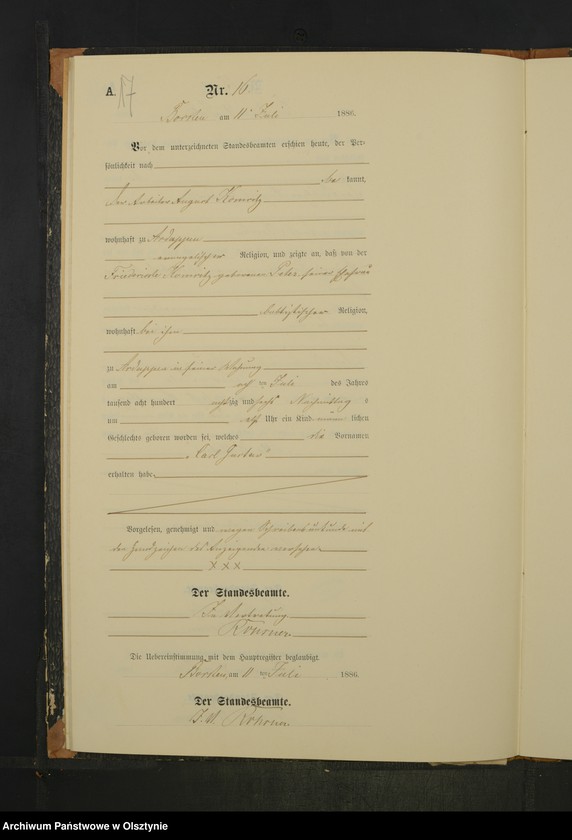 A. 17
Nr. 16.
Borken am 11. Juli 1886.
Vor dem unterzeichneten Standesbeamten erschien heute, der Per-
sönlichkeit nach
be kannt,
der Arbeiter August
wohnhaft zu Ardappen
evangelischer Religion, und zeigte an, daß von der
Friederike geborenen seiner Ehefrau
baptistischer Religion,
wohnhaft bei ihm
zu Ardappen in seiner Wohnung
am Juli des Jahres
tausend acht hundert achtzig und sechs Nachmittag s
um Uhr ein Kind männ lichen
Geschlechts geboren worden sei, welches die Vornamen
„Carl Gustav“
erhalten habe.
Vorgelesen, genehmigt und wegen Schreibensunkunde mit
den Handzeichen des Anzeigenden versehen
X X X
Der Standesbeamte.
In Vertretung
Die Uebereinstimmung mit dem Hauptregister beglaubigt.
Borken, am 11 ten Juli 1886.
Der Standesbeamte.
I. V.
Archiwum Państwowe w Olsztynie